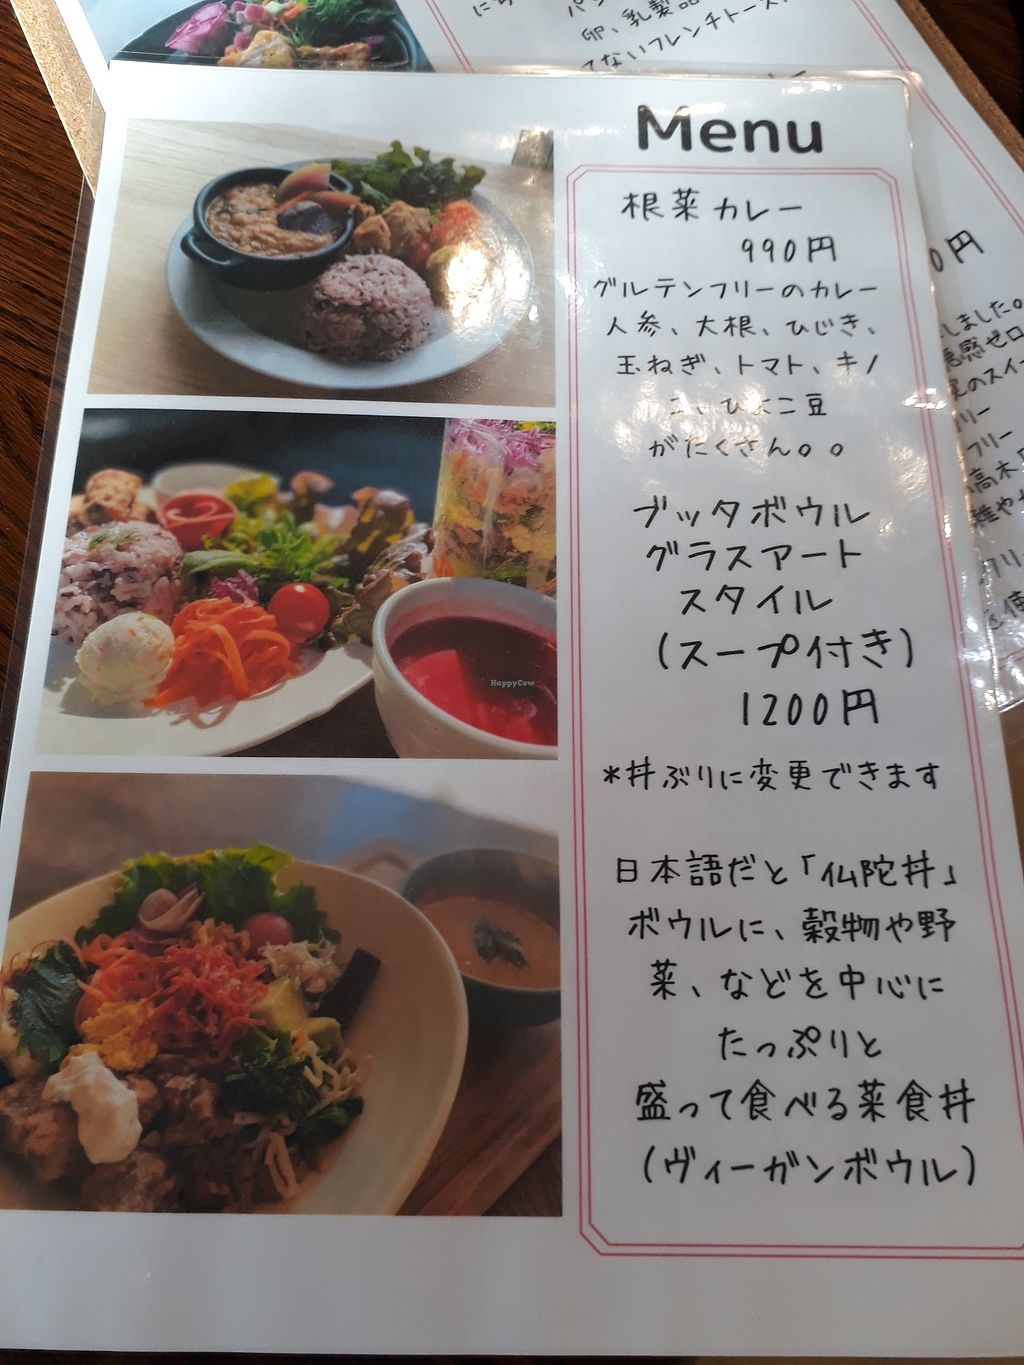 Menu
根菜カレー
990円
グルテンフリーのカレー
人参、大根、ひじき、
玉ねぎ、トマト、キノ
コ、ひよこ豆
がたくさん。。
ブッタボウル
グラスアート
スタイル
(スープ付き)
1200円
*丼ぶりに変更できます
日本語だと「仏陀丼」
ボウルに、穀物や野
菜、などを中心に
たっぷりと
盛って食べる菜食丼
(ヴィーガンボウル)
HappyCow
卵、乳製品
てないフレンチトースト
0円
しました。
感ゼロ
のスイー
リー
フリー